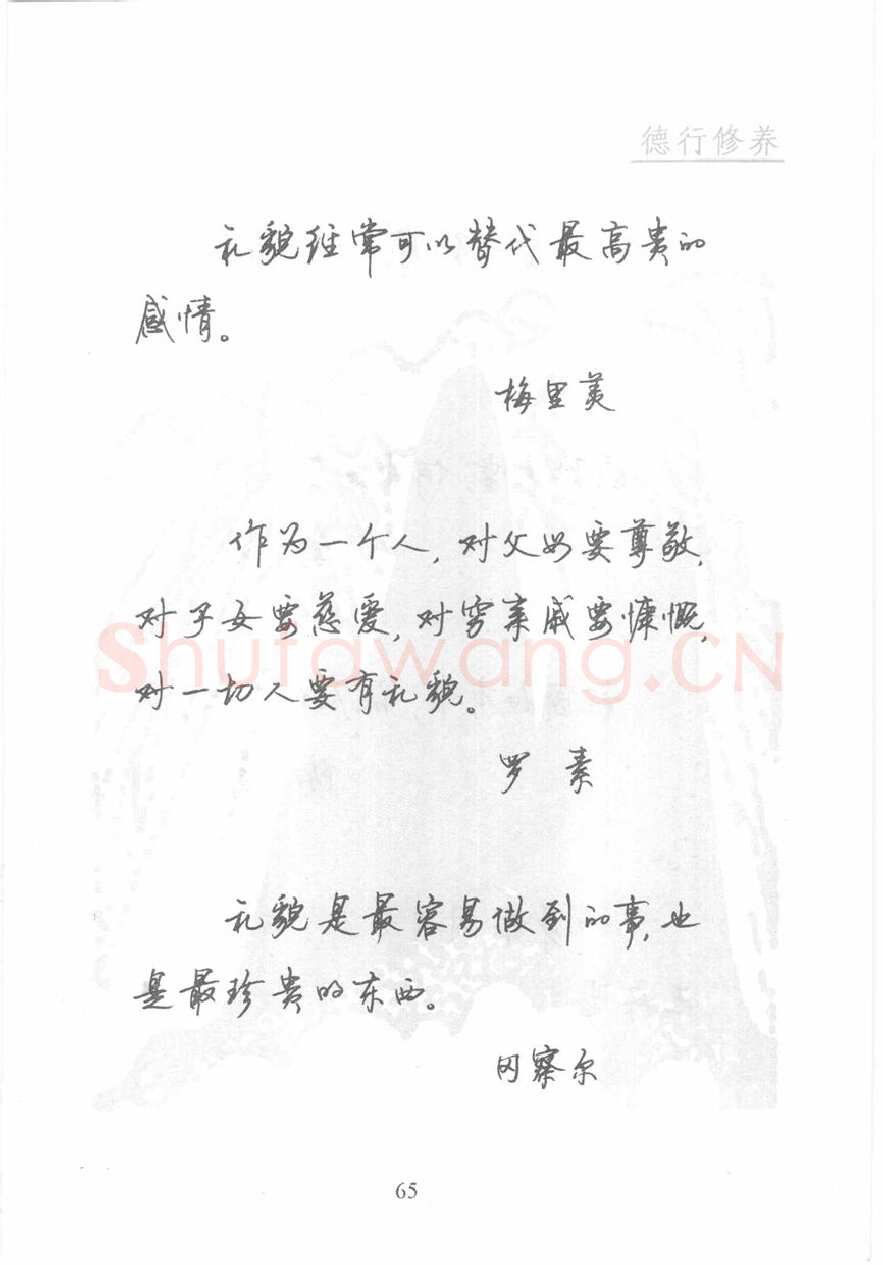 德行修养
礼貌经常可以替代最高贵的
感情。
梅里美
作为一个人，对父母要尊敬，
对子女要慈爱，对穷亲戚要慷慨，
对一切人要有礼貌。
Shufawang.CN
罗 素
礼貌是最容易做到的事，也
是最珍贵的东西。
冈察尔
65